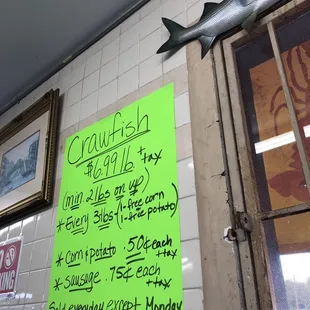 Crawfish
$6.99 lb + tax
(min 2lbs on up)
* Every 3lbs - (1-free corn
1-free potato)
* Corn & potato .50¢ each
+ tax
* Sausage .75¢ each
+ tax
Sold everyday except Monday
KING